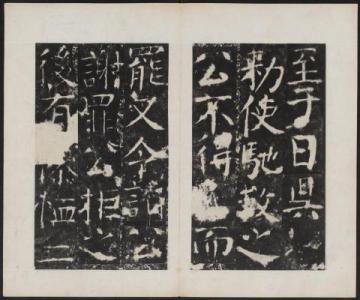 至于日昃
勑使馳救之
公不得而
罷又令詣公
謝罪公拒之
後有恤二